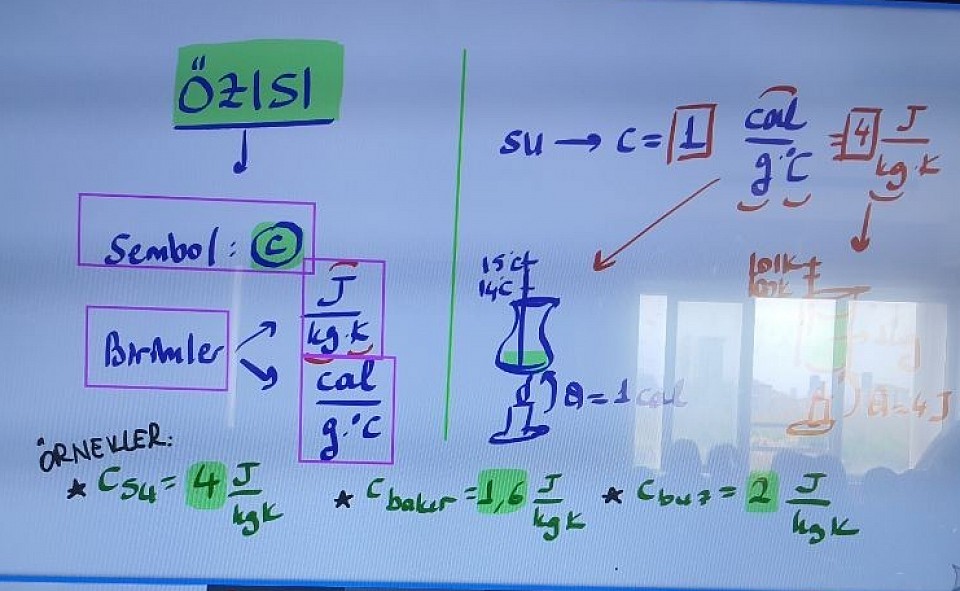 ÖZISI
Sembol: c
Birimler
J
kg.K
cal
g.°C
su → c = 1 cal/g.°C = 4 J/kg.K
15°C
14°C
Q = 1 cal
Q = 4 J
ÖRNEKLER:
* Csu = 4 J/kgK * Cbakır = 1,6 J/kgK * Cbuz = 2 J/kgK